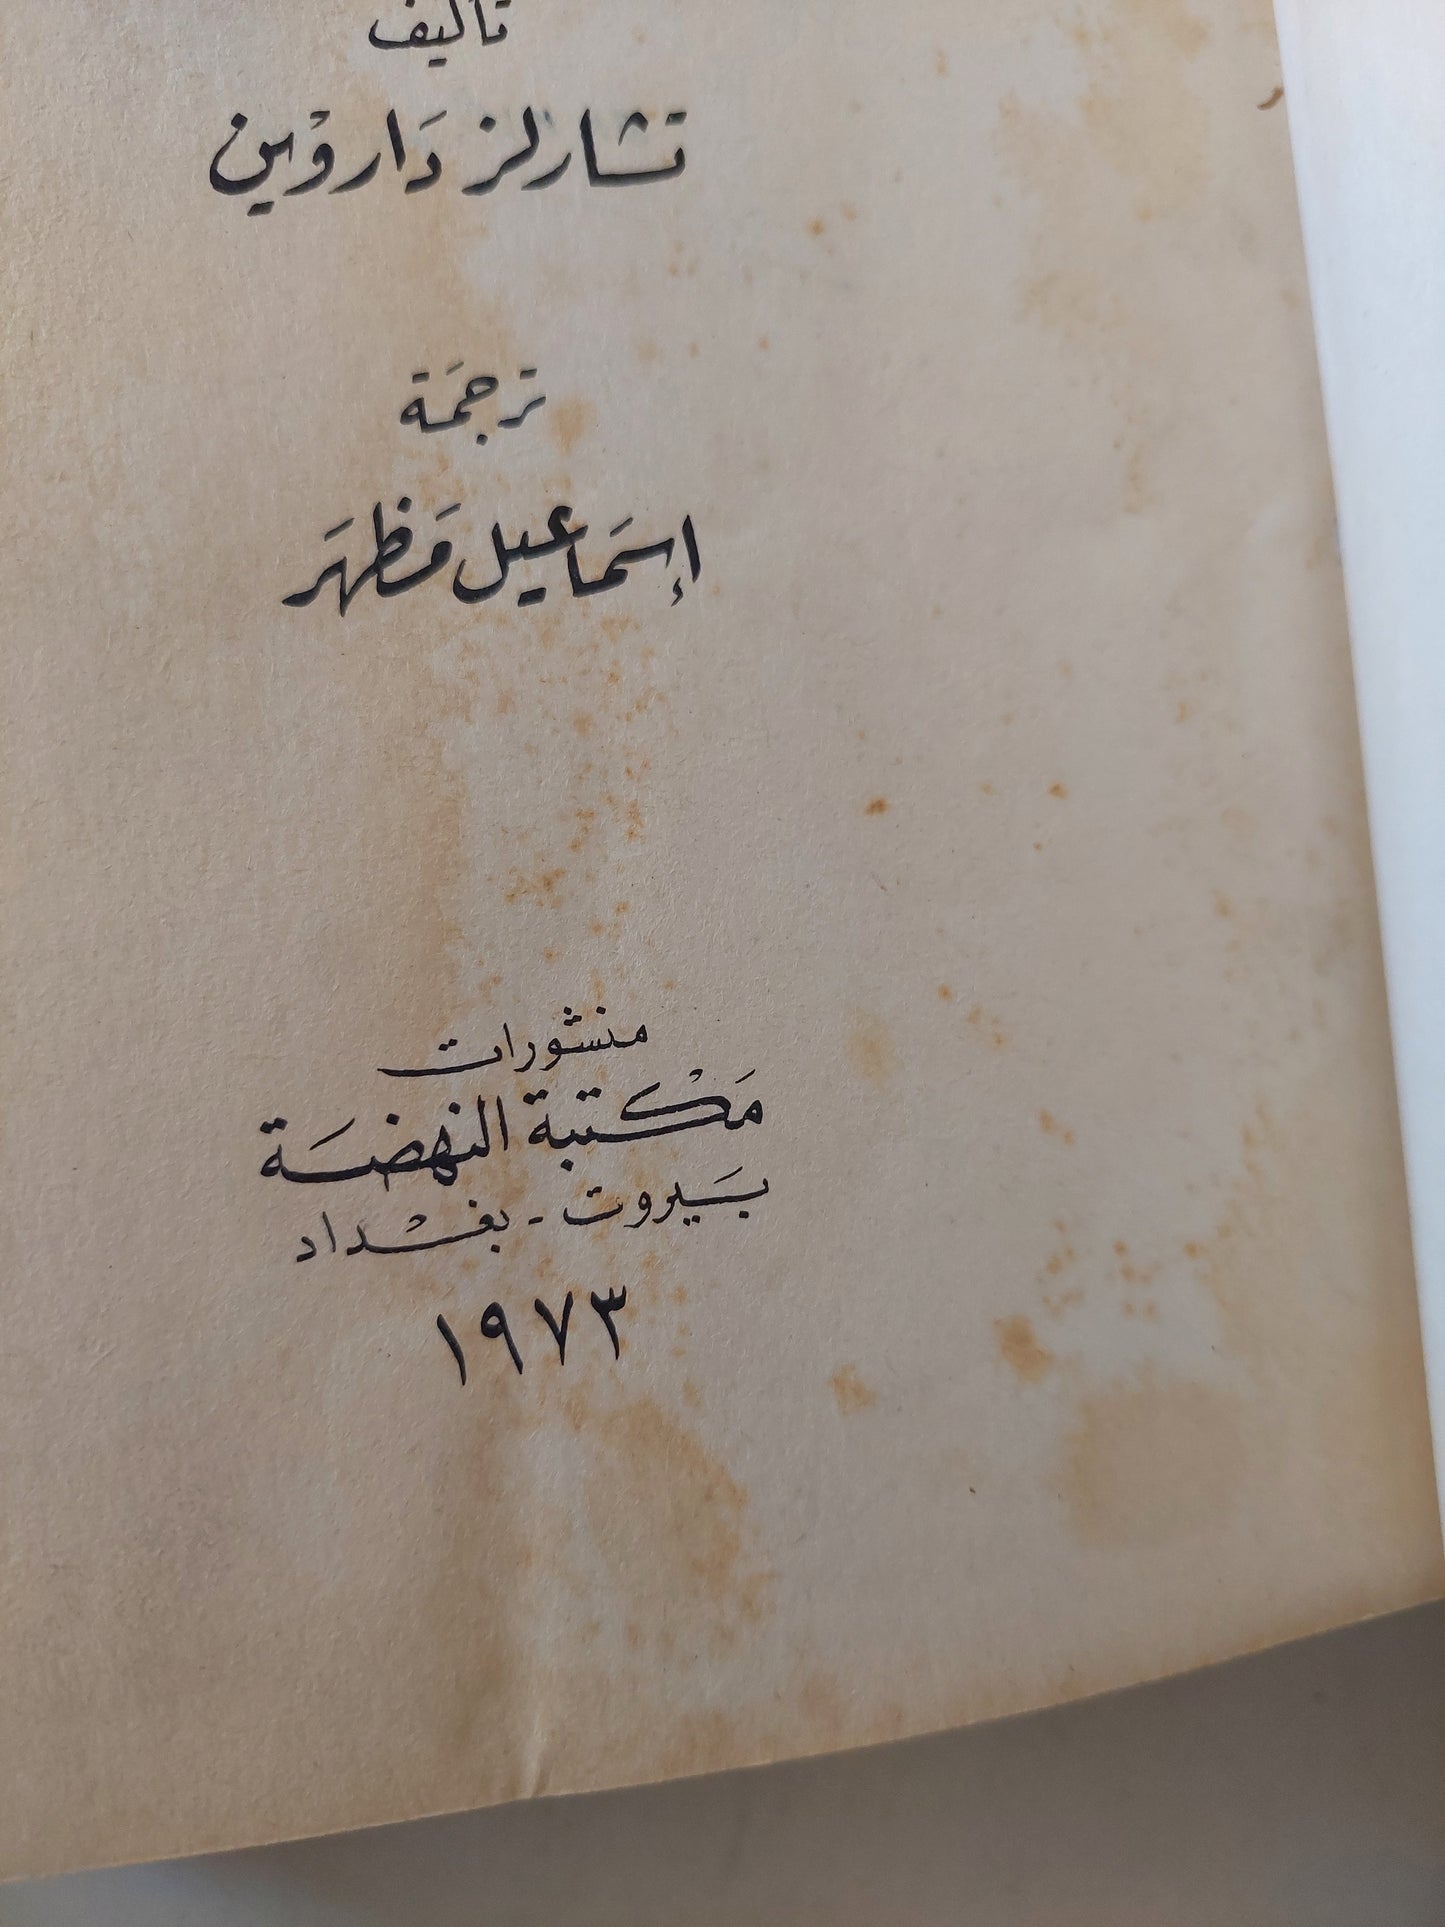 تأليف
تشارلز دَاروْين
ترجَمة
إسمَاعيل مَظهَر
منشورات
مَكْتبة النهضَة
بَيروت - بغْداد
١٩٧٣